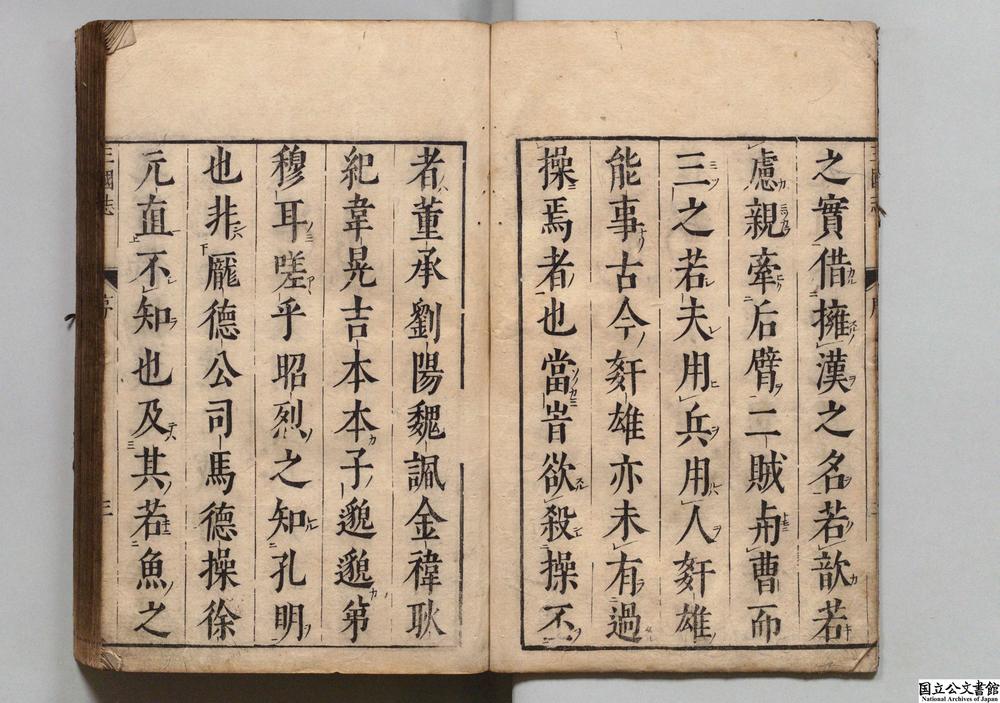 之實借擁漢之名若歆若
慮親牽后臂二賊與曹而
三之若夫用兵用人奸雄
能事古今奸雄亦未有過
操焉者也當旹欲殺操不
者董承劉陽魏諷金禕耿
紀韋晃吉本本子邈邈第
穆耳嗟乎昭烈之知孔明
也非龐德公司馬德操徐
元直不知也及其若魚之
三國志
序
三
国立公文書館
National Archives of Japan